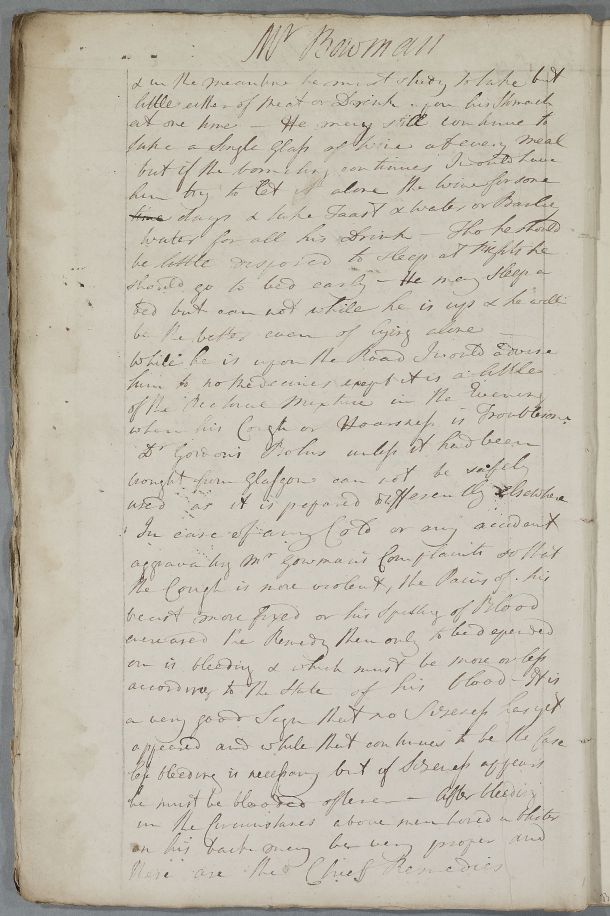 Mr Bowman
& in the meantime he must study to take but
little either of Meat or Drink upon his Stomach
at one time – He may still continue to
take a Single Glass of Wine at every meal
but if the vomiting continues I would have
him try to let alone the wine for some
time days & take Toast & water or Barley
Water for all his Drink – Tho he should
be little disposed to sleep at Nights he
should go to bed early – He may Sleep a
bed but can not while he is up & he will
be the better even of lying alone –
While he is upon the Road I would advise
him to no Medecines except it is a little
of the Pectoral Mixture in the Evening
when his Cough or Hoarsness is Troublesome
Dr Gordons Bolus unless it had been
brought from Glasgow can not be safely
used as it is prepared differently elsewhere
In case of any Cold or any accident
aggravating Mr Bowmans Complaints so that
the Cough is more violent, the Pains of his
breast more fixed or his Spitting of Blood
encreased the Remedy then only to be depended
on is bleeding & which must be more or less
according to the State of his blood – It is
a very good Sign that no Sizeness has yet
appeared and while that continues to be the Case
less bleeding is necessary but if Sizeness appears
he must be blooded oftener – After bleeding
in the Circumstances above mentioned a blister
on his back may be very proper and
these are the Chief Remedies